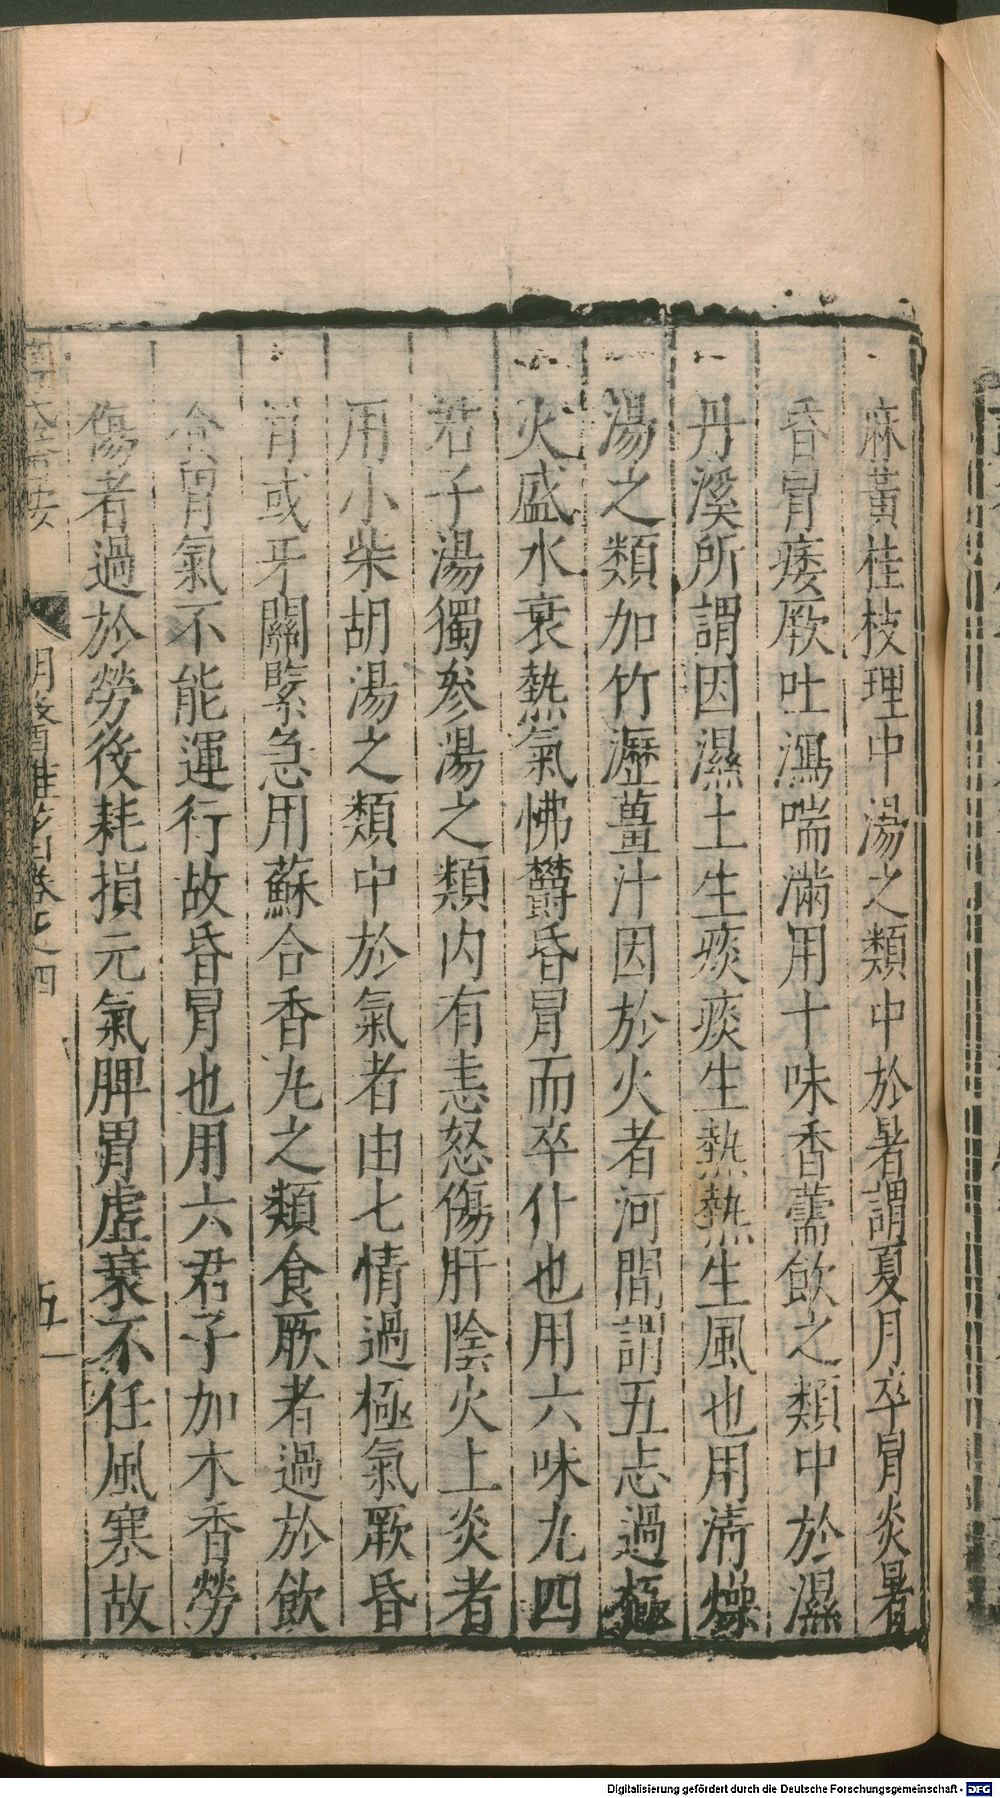 麻黃桂枝理中湯之類中於暑謂夏月卒冐炎暑
昏冐痿厥吐瀉喘滿用十味香薷飲之類中於濕
丹溪所謂因濕土生痰痰生熱熱生風也用清燥
湯之類加竹瀝薑汁因於火者河間謂五志過極
火盛水衰熱氣怫欝昏冐而卒仆也用六味丸四
君子湯獨參湯之類内有恚怒傷肝陰火上炎者
用小柴胡湯之類中於氣者由七情過極氣厥昏
冐或牙關緊急用蘇合香丸之類食厥者過於飲
食胃氣不能運行故昏冐也用六君子加木香勞
傷者過於勞役耗損元氣脾胃虛衰不任風寒故
卷之四
五
Digitalisierung gefördert durch die Deutsche Forschungsgemeinschaft - DFG